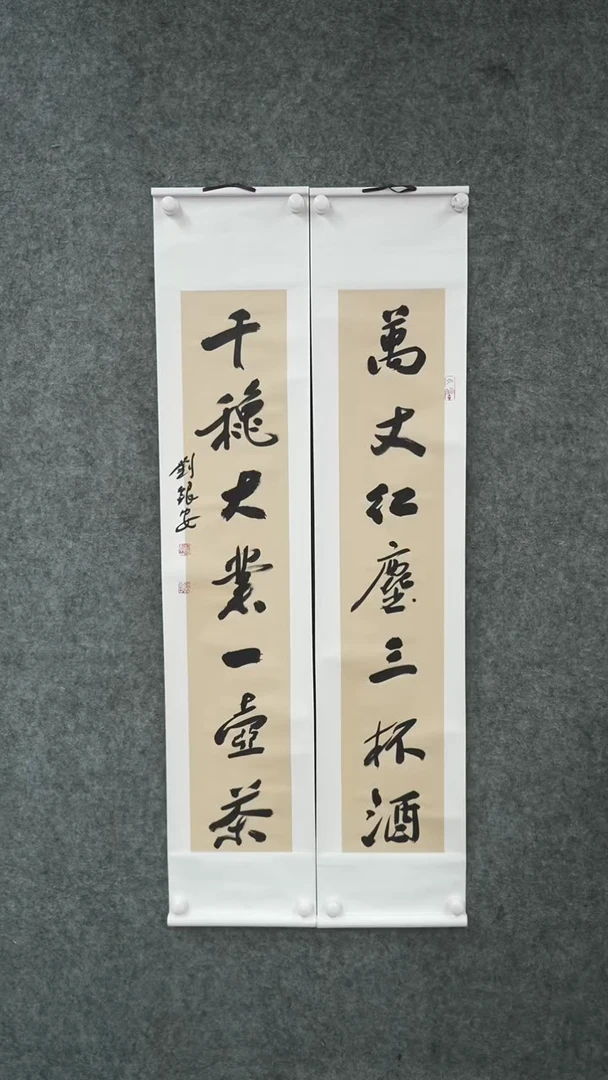 萬丈红塵三杯酒
千穐大業一壺茶
劉銀安